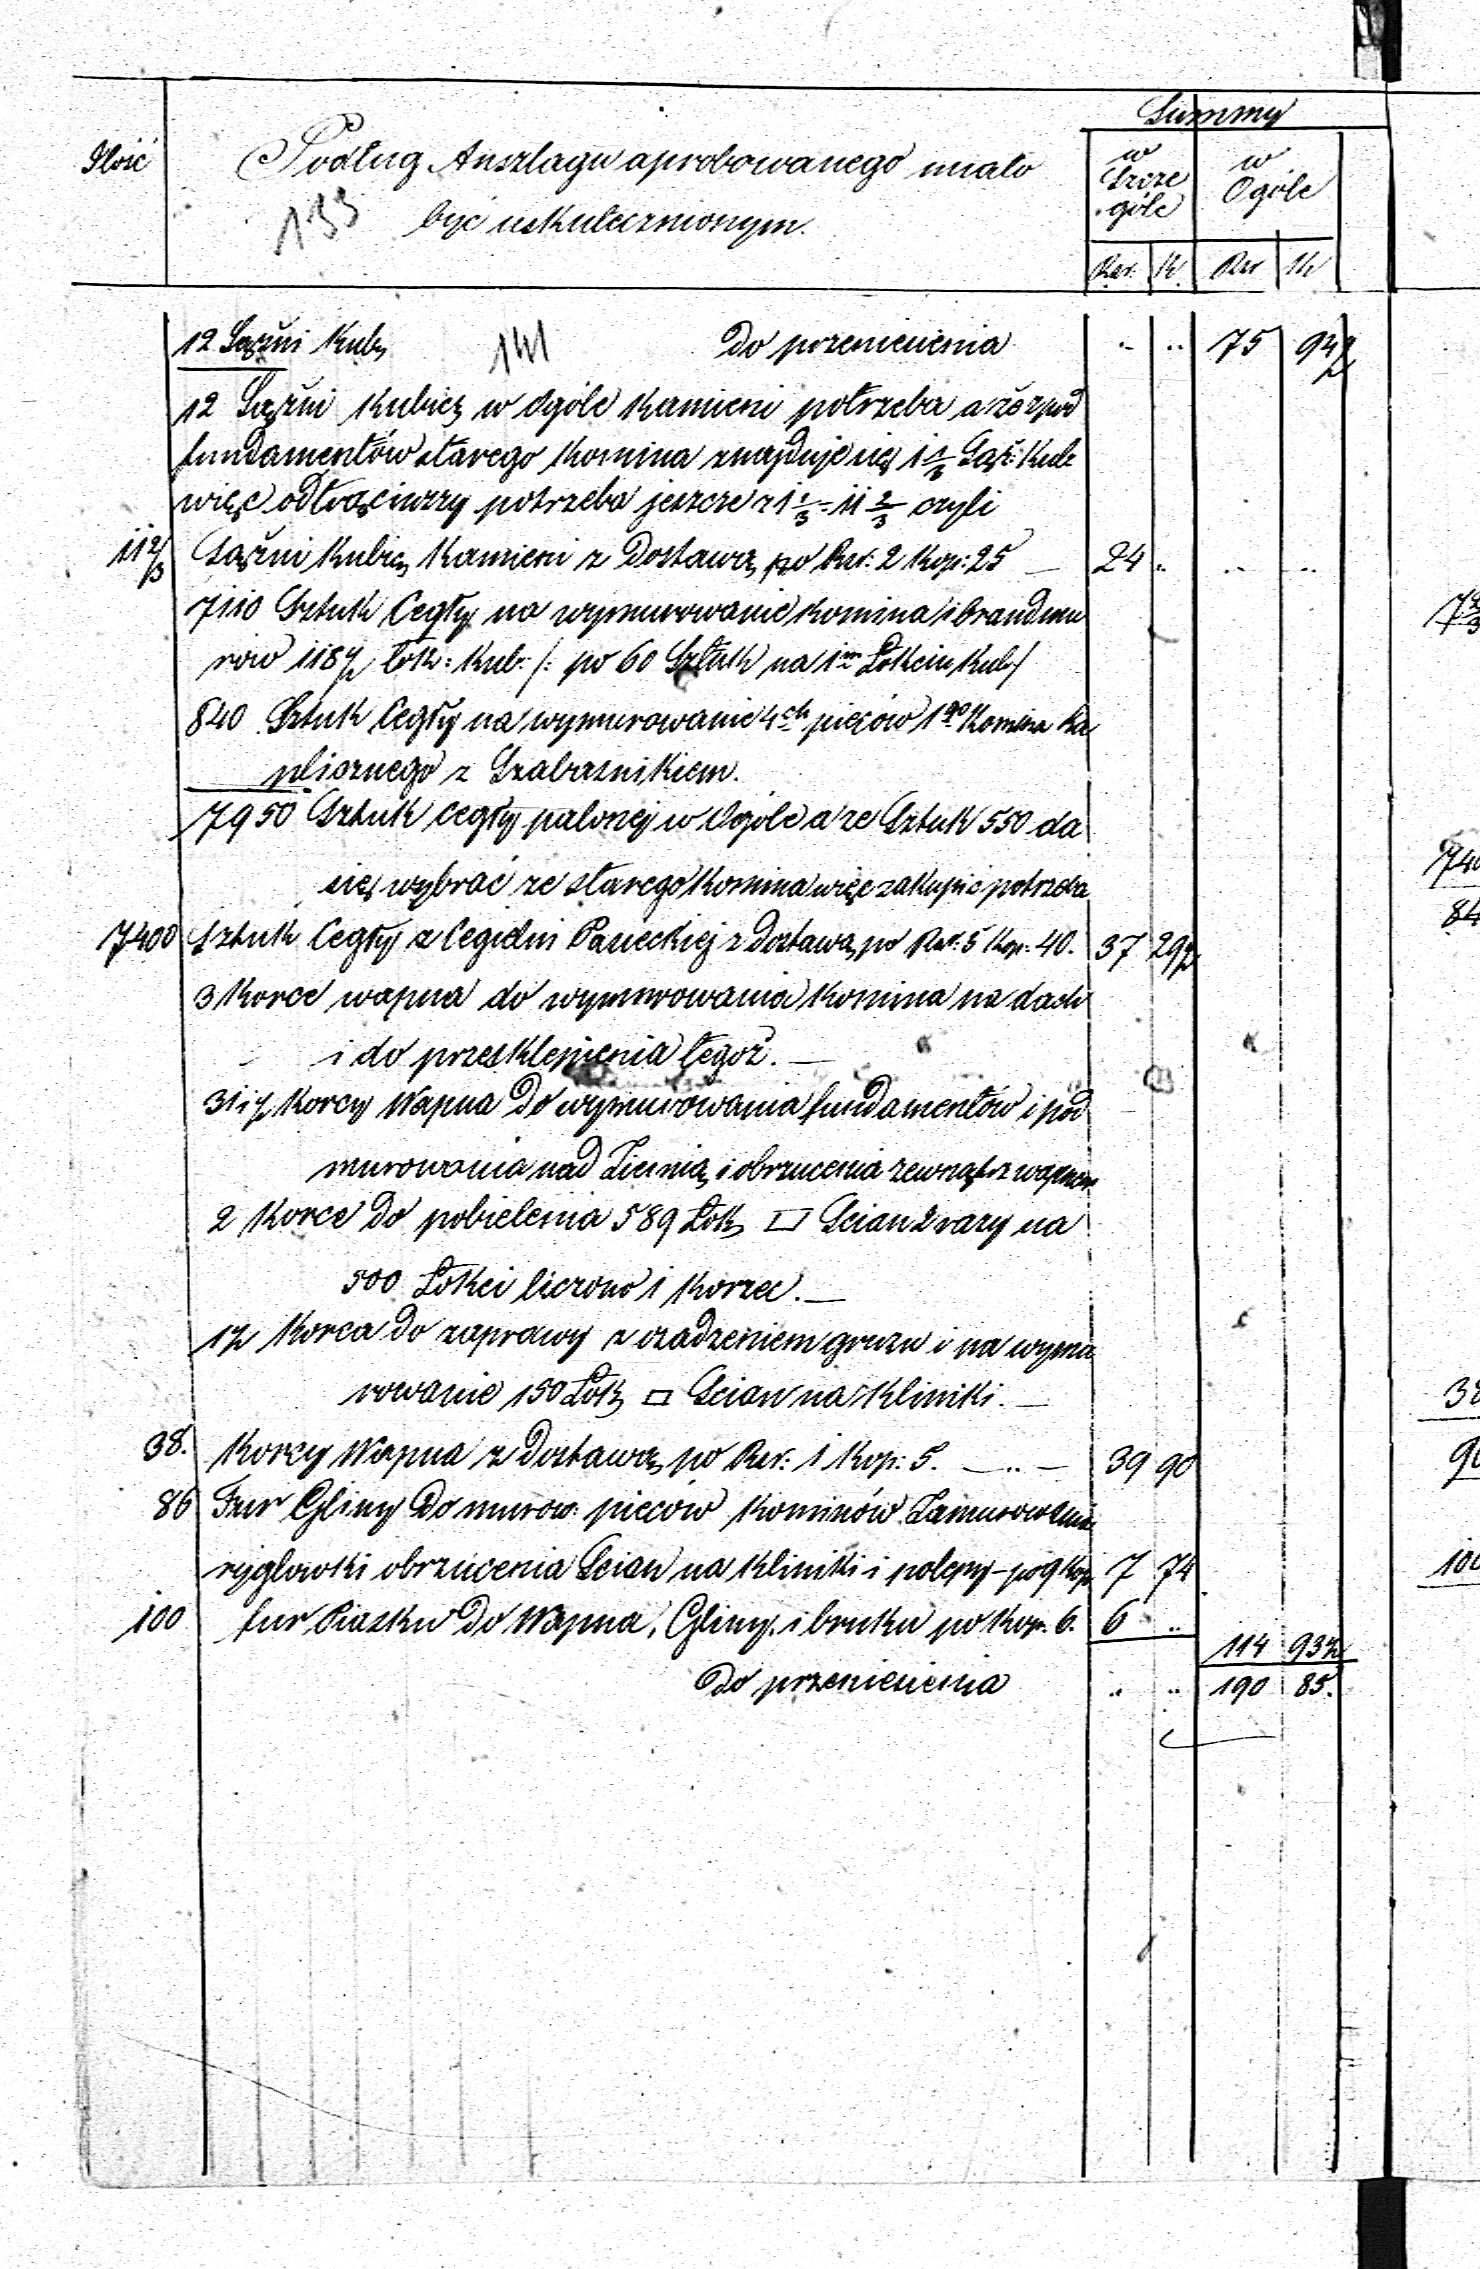 Summy
Ilość
Podług Anszlagu aprobowanego miało
być uskutecznionym.
133
w Szcze góle
w Ogóle
Rsr. K. Rsr K
12 Sążni Kub, 141 do przeniesienia " " 75 91 1/2
12 Sążni Kubicz w ogóle Kamieni potrzeba a że z pod
fundamentów starego Komina znajduje się 1 1/3 Sąż: Kub
więc odtrąciwszy potrzeba jeszcze czyli
11 2/3 Sążni Kubicz Kamieni z Dostawą po Rsr: 2 Kop: 25 — 24 " " "
7110 Sztuk Cegły na wymurowanie Komina i brandmu
rów 118 1/2 łok: Kub: /: po 60 Sztuk na 1m Łokciu Kub/
840 Sztuk Cegły na wymurowanie 4ch pieców 1go Komina ka
plicznego z Szabaśnikiem.
7950 Sztuk cegły palonej w Ogóle a że Sztuk 550 da
się wybrać ze starego Komina więc zakupić potrzeba
7400 Sztuk Cegły z Cegielni Panieckiej z Dostawą po Rsr. 5 Kop. 40. 37 29 1/2
3 Korce wapna do wymurowania Komina na dach
i do przesklepienia tegoż. —
31 1/2 Korcy Wapna Do wymurowania fundamentów i pod
murowania nad Ziemią i obrzucenia zewnątrz wapnem
2 Korce Do pobielenia 589 Łok □ Scian 2 razy na
500 Łokci liczono 1 Korzec. —
1 1/2 Korca Do zaprawy z osadzeniem gruzu i na wymu
rowanie 150 Łok □ Scian na Kliniki. —
38. Korcy Wapna z Dostawą po Rsr: 1 Kop: 5. — " — 39 90
86 Fur Gliny Do murow: pieców Kominów Zamurowania
ryglowki obrzucenia Scian na Kliniki i polepy - po 9 Kop 7 74
100 fur Piasku Do Wapna, Gliny, i bruku po Kop. 6. 6 "
114 93 1/2
Do przeniesienia " " 190 85.